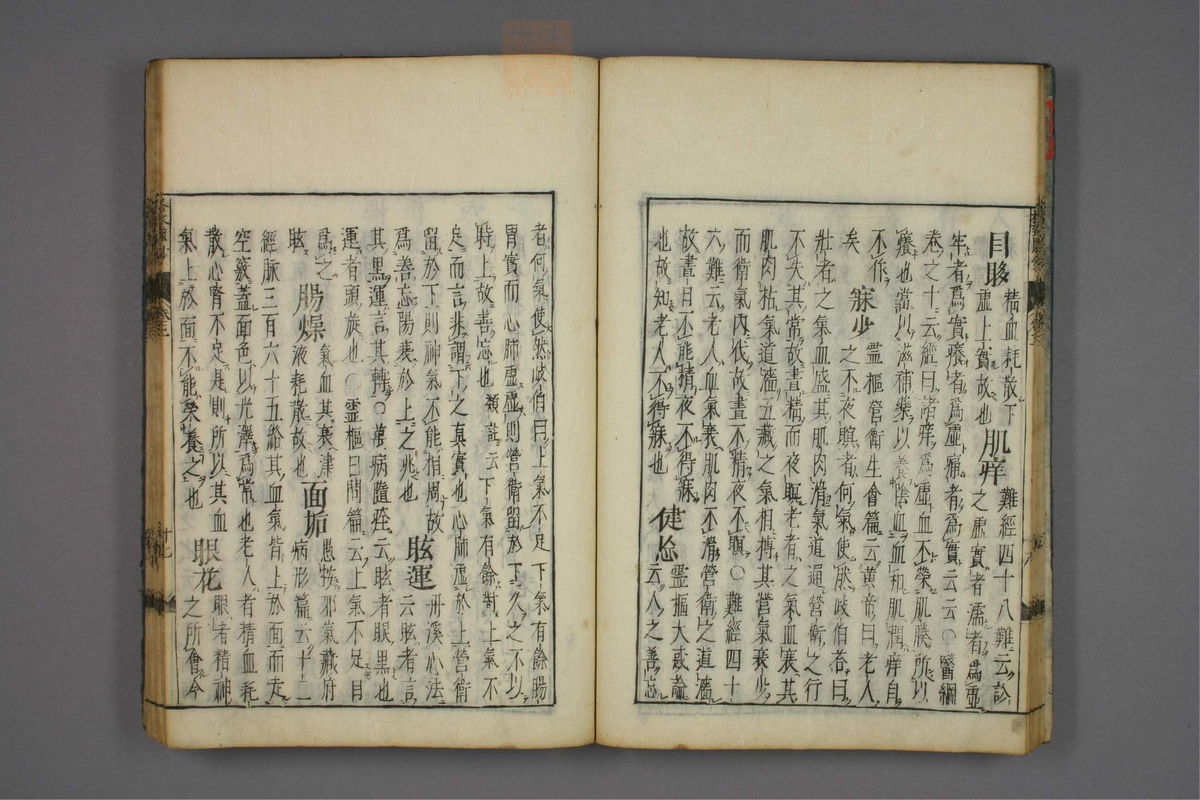 目眵 精血耗散下虛上實故也 肌痒 難經四十八難云診之虛實者濡者爲虛
牢者爲實癢者爲虛痛者爲實云云○醫綱
卷之十云經曰諸痒爲虛血不榮肌腠所以
癢也當以滋補藥以養陰血血和肌潤痒自
不作矣 寐少 靈樞營衛生會篇云黃帝曰老人之不夜瞑者何氣使然歧伯荅曰
壯者之氣血盛其肌肉滑氣道通營衛之行
不失其常故晝精而夜瞑老者之氣血衰其
肌肉枯氣道濇五藏之氣相搏其營氣衰少
而衛氣內伐故晝不精夜不瞑○難經四十
六難云老人血氣衰肌肉不滑營衛之道濇
故晝日不能精夜不得寐也故知老人不得寐也 健忘 靈樞大惑論云人之善忘
者何氣使然歧伯曰上氣不足下氣有餘腸
胃實而心肺虛虛則營衛留於下久之不以
時上故善忘也 類註云下氣有餘對上氣不
足而言非謂下之真實也心肺虛於上營衛
留於下則神氣不能相周故爲善忘陽衰於上之兆也 眩運 丹溪心法云眩者言
其黑運言其轉○萬病醫痊云眩者眼黑也
運者頭旋也○靈樞口問篇云上氣不足目
爲之眩 腸燥 氣血其衰津液耗散故也 面垢 愚按邪氣藏府病形篇云十二
經脈三百六十五絡其血氣皆上於面而走
空竅蓋面色以光澤爲常也老人者精血耗
散心腎不足是則所以其血氣上於面不能榮養之也 眼花 眼者精神之所會今